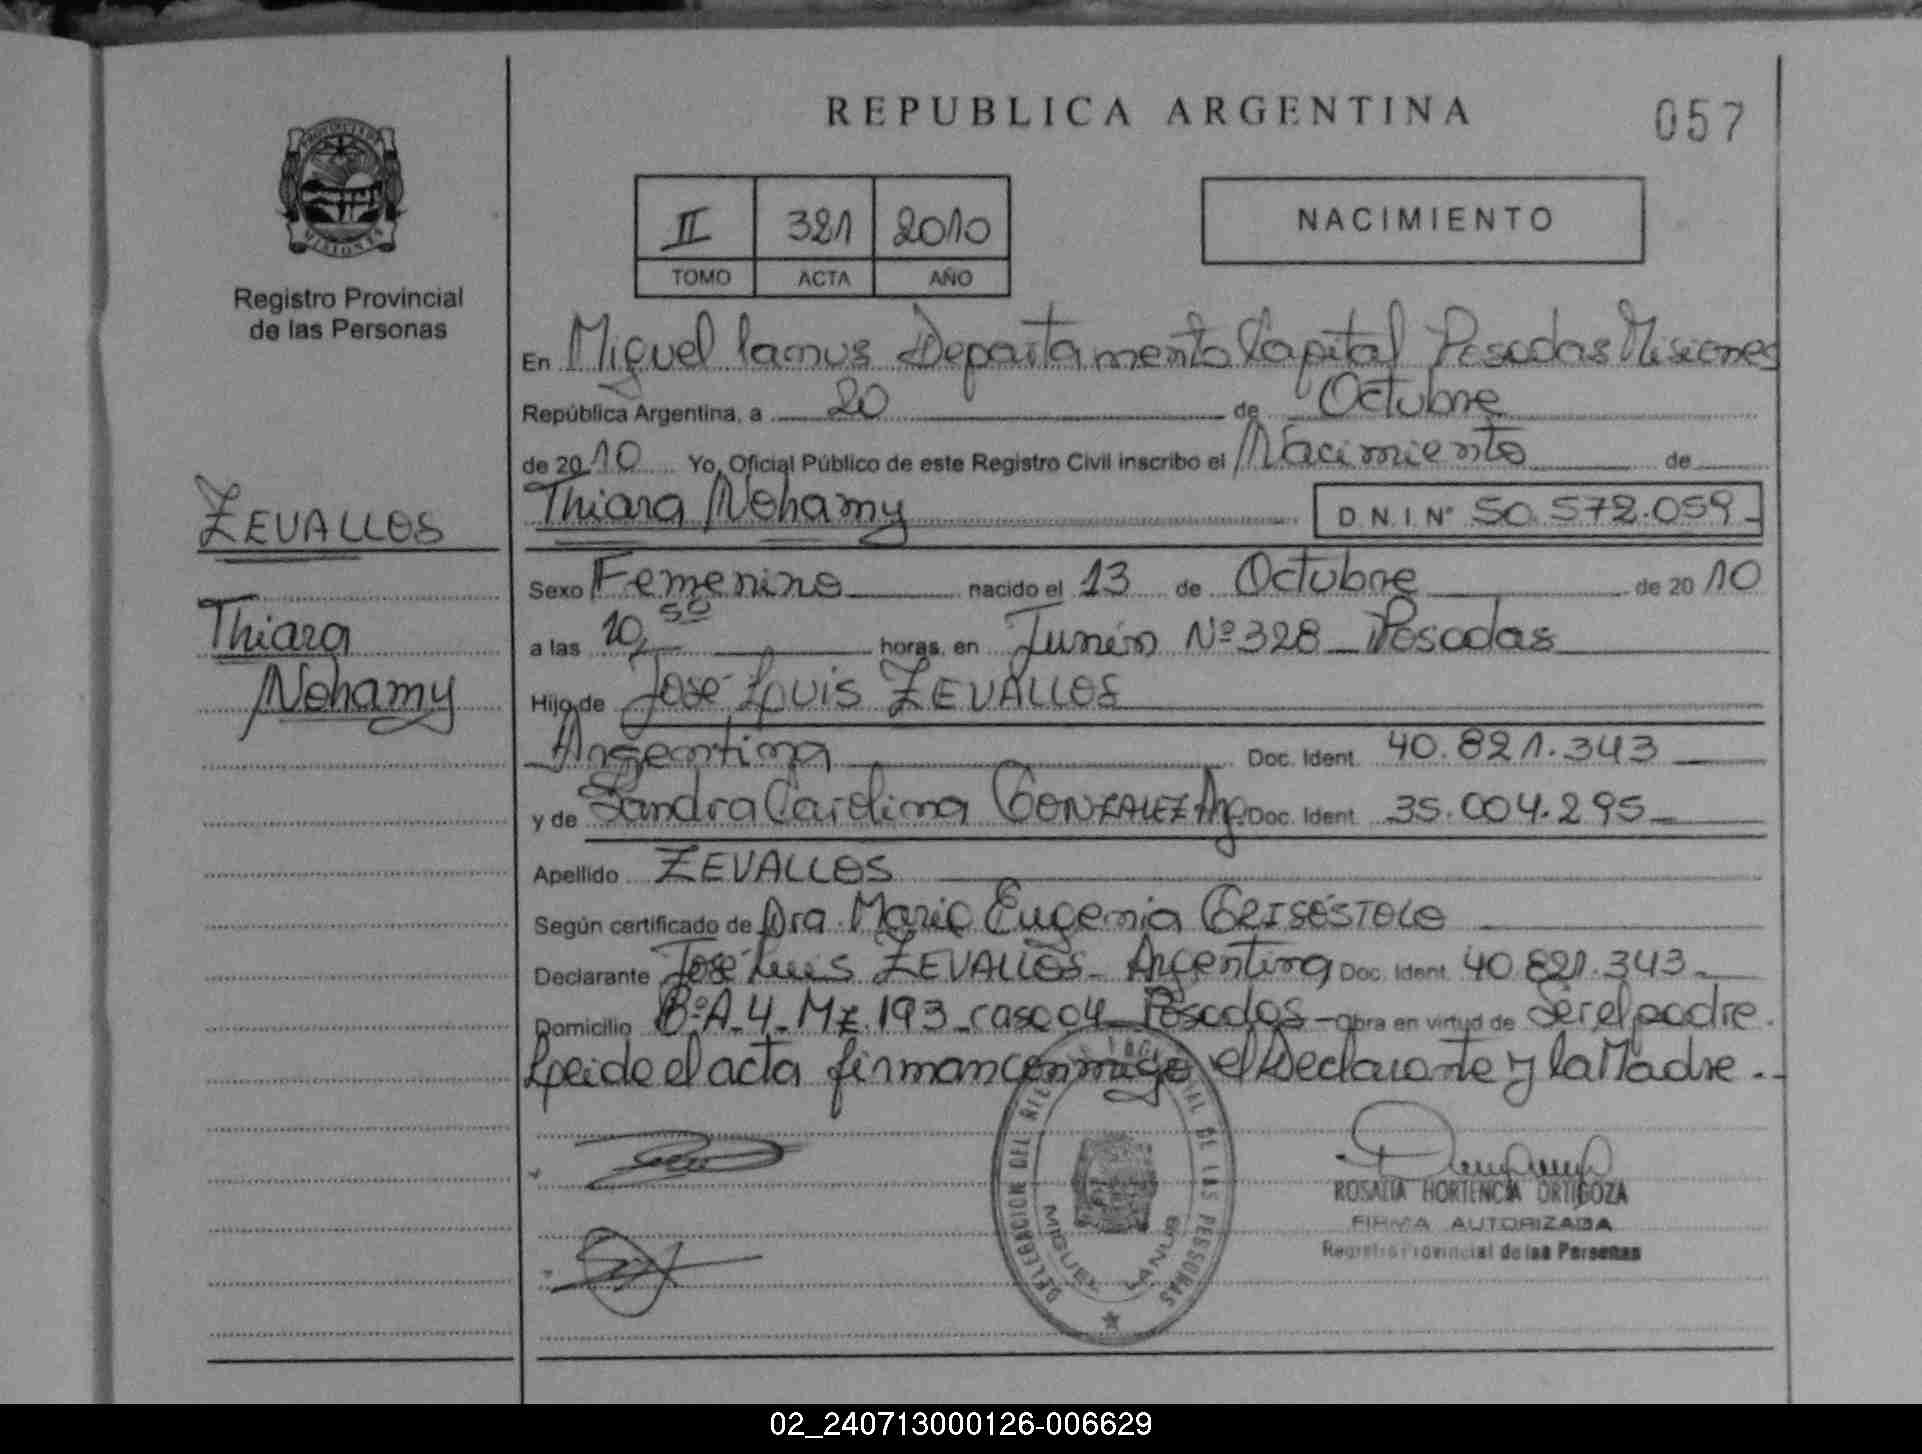 REPUBLICA ARGENTINA
057
PROVINCIA DE
MISIONES
Registro Provincial
de las Personas
II 321 2010
TOMO ACTA AÑO
NACIMIENTO
En Miguel Lanus Departamento Capital Posadas Misiones
República Argentina, a 20 de Octubre
de 2010 Yo, Oficial Público de este Registro Civil inscribo el Nacimiento de
Thiara Nohamy D.N.I. Nº 50.572.059
ZEVALLOS
Thiara
Nohamy
Sexo Femenino nacido el 13 de Octubre de 2010
a las 10,50 horas, en Junín Nº 328 Posadas
Hijo de José Luis ZEVALLOS
Argentina Doc. Ident. 40.821.343
y de Sandra Carolina GONZALEZ Arg. Doc. Ident. 35.004.295
Apellido ZEVALLOS
Según certificado de Dra. María Eugenia
Declarante José Luis ZEVALLOS - Argentina Doc. Ident. 40.821.343
Domicilio BºA-4-Mz.193 casa 04 Posadas - Obra en virtud de Ser el padre.
Leida el acta firman conmigo el Declarante y la Madre.-
DELEGACION DEL REGISTRO PROVINCIAL DE LAS PERSONAS
MIGUEL LANUS
ROSALIA HORTENCIA ORTIGOZA
FIRMA AUTORIZADA
Registro Provincial de las Personas
02_240713000126-006629